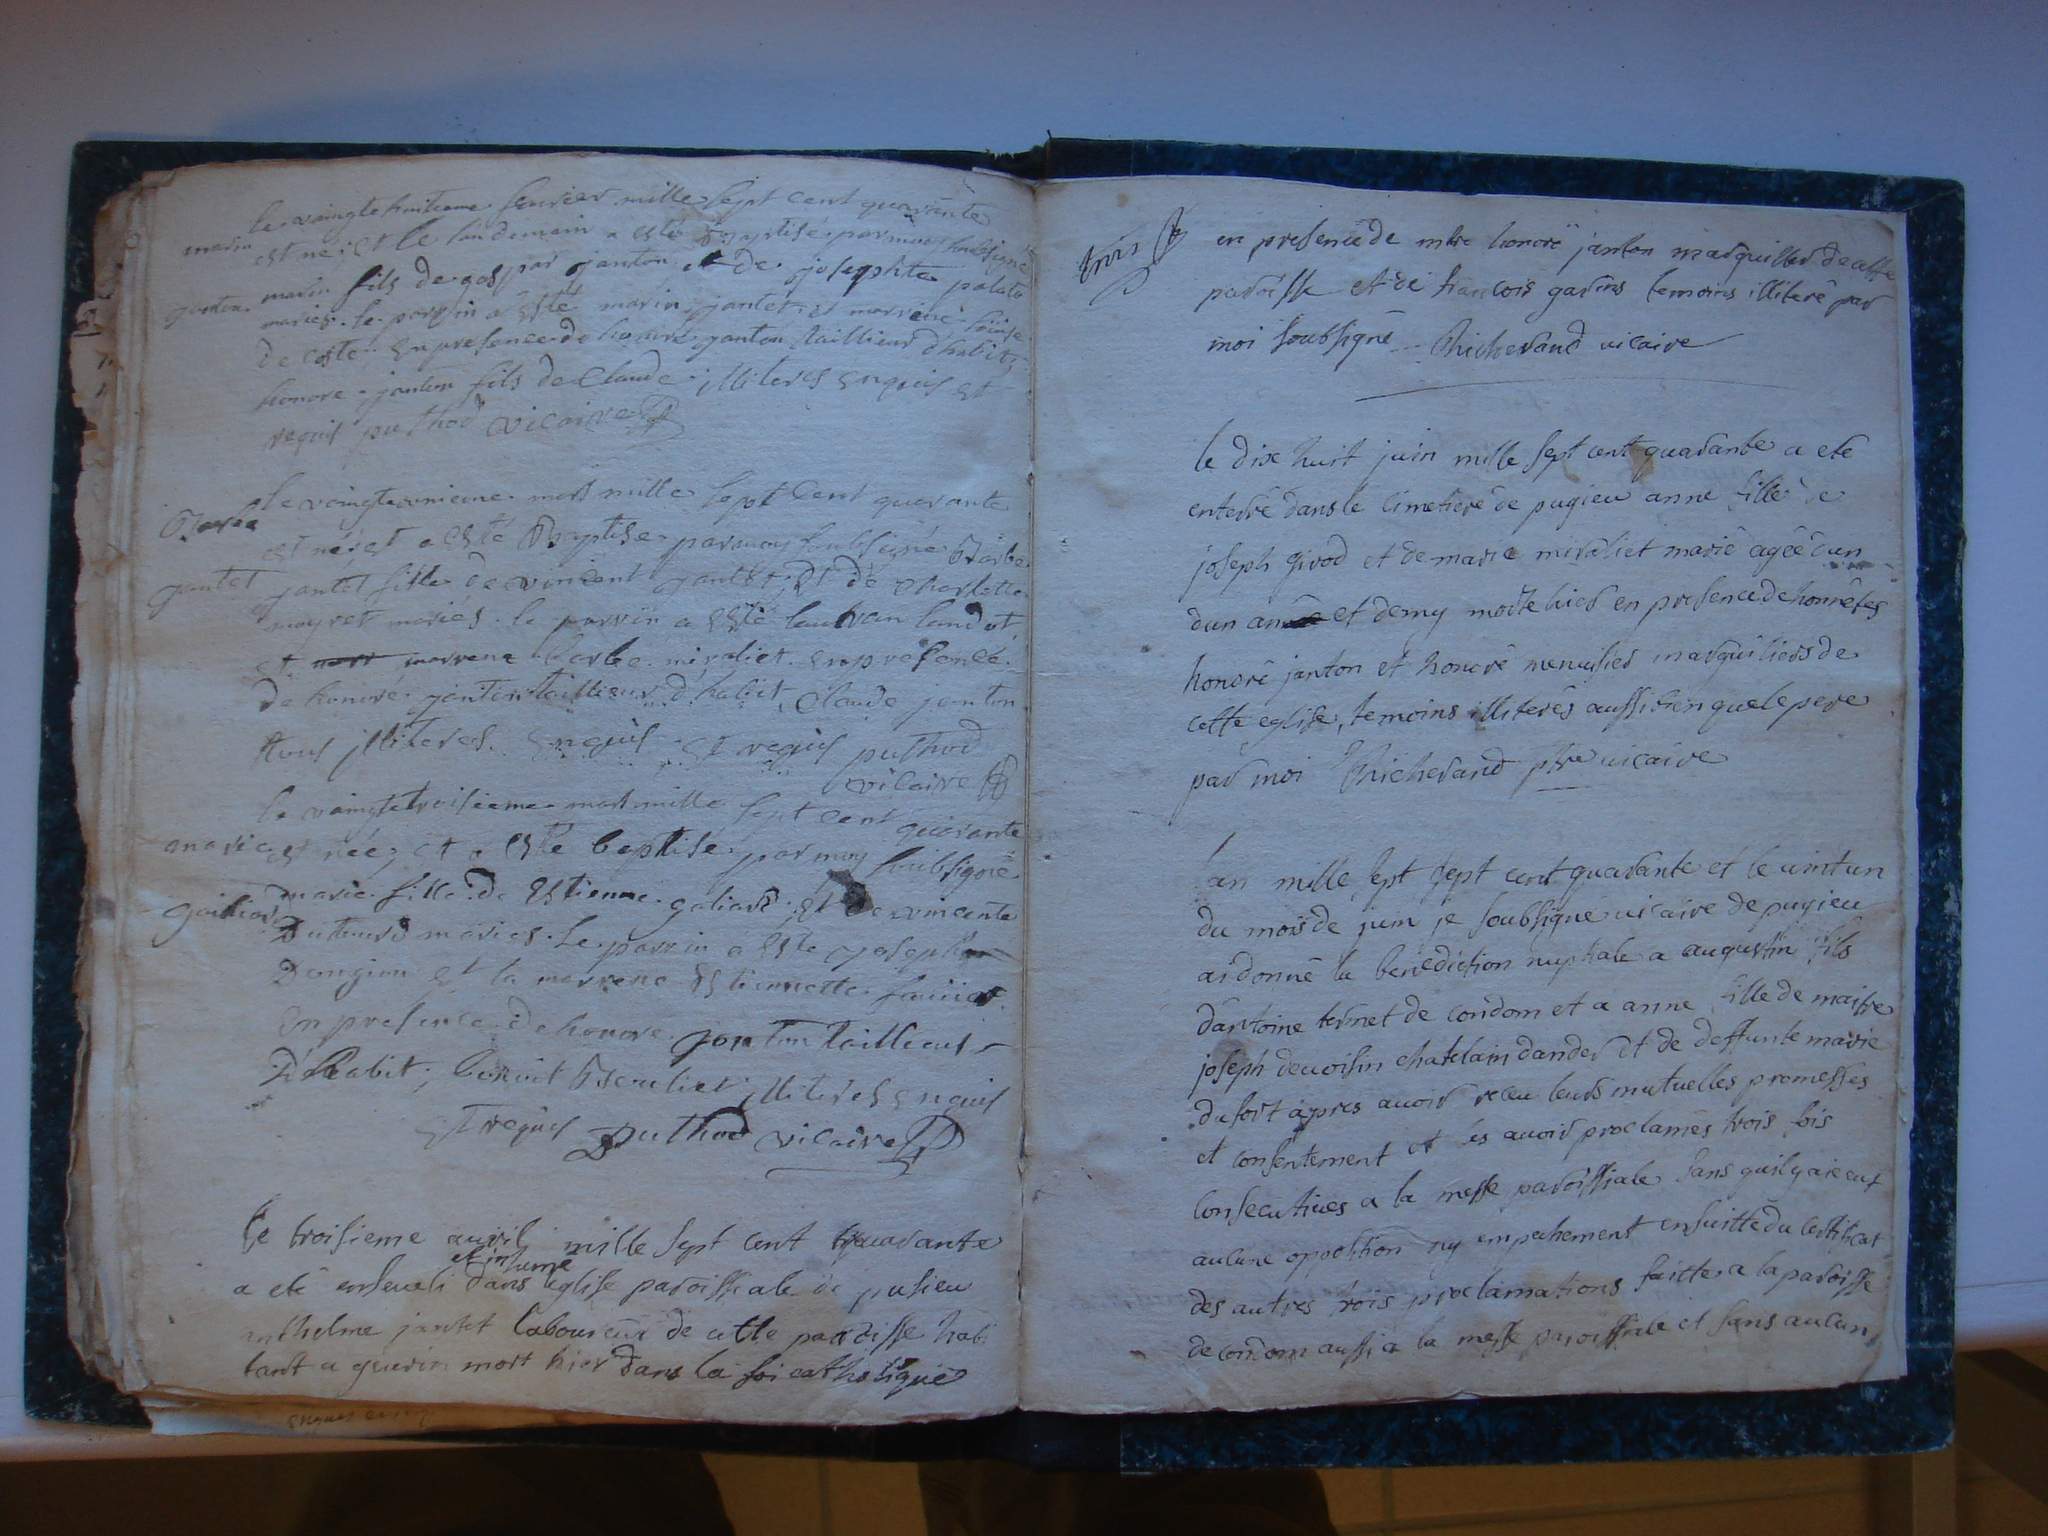 le vaingtehuitieme feuvrier mille sept cent quarante
marin est né; et le landemain a esté Baptisé par moy soubsigné
janton marin fils de gaspar janton et de josephte palato
mariés. le parrin a esté marin jantet, et marrene
de coste. En presence de honoré janton taillieur d'habits,
honore janton fils de Claude illiteres Enquis Et
requis puthod vicaire
le vaingteunieme mars mille sept Cent quarante
Barbe est née; et a esté Baptise par moy soubsigné Barbe
jantet jantet fille de vincent jantet; Et de Charlotte
mayret mariés. le parrin a esté landot
et marrene barbe miraliet. En presence
de honoré janton taillieur d'habit, Claude janton
tous illiteres Enquis Et requis puthod
vicaire
le vaingtetroisieme mars mille sept cent quarante
marie est née; et a Esté baptisé par moy soubsigné
galiard marie fille de Estienne galiard; Et de vincente
Duteurd mariés. Le parrin a Esté joseph
Dangion Et la marrene Estiennette
En presence de honore janton tailleur
D'habit; benoit illiteres Enquis
Et requis Puthod vicaire
Le troisieme avril mille sept cent quarante
et inhumé
a eté enseveli dans eglise paroissiale de pusieu
anthelme jantet laboureur de cette paroisse habi
tant a mort hier dans la foi catholique
trois en presence de mtre honoré janton marguiller de cette
paroisse et de francois garins temoins illiteré par
moi soubsigné Richerand vicaire
le dix huit juin mille sept cent quarante a ete
enterré dans le cimetiere de pugieu anne fille de
joseph girod et de marie miraliet marié agée d'un
dun an et demy morte hier en presence de honnêtes
honoré janton et honoré menuisier marguilliers de
cette eglise, temoins illiterés aussi bien que le pere
par moi Richerand ptre vicaire
lan mille sept sept cent quarante et le vint un
du mois de juin je soubsigné vicaire de pugieu
ai donné la benediction nuptiale a augustin fils
dantoine ternet de condom et a anne fille de maitre
joseph devoisin chatelain dandes et de deffunte marie
dufort apres avoir receu leurs mutuelles promesses
et consentement et és avoir proclamés trois fois
consecutives a la messe paroissiale sans quil y aie eut
aucune opposition ny empechement ensuitte du certificat
des autres trois proclamations faittes a la paroisse
de condom aussi a la messe paroissiale et sans aucun